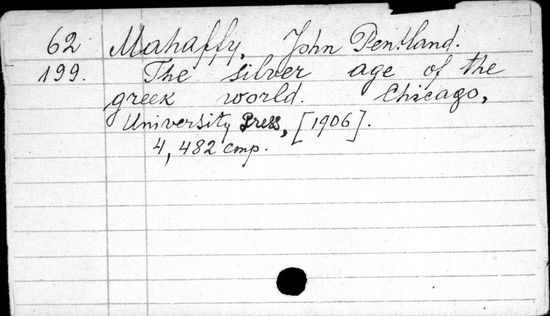 62 Mahaffy, John Pentland.
199. The silver age of the
greek world. Chicago,
University Press, [1906].
4, 482 cmp.